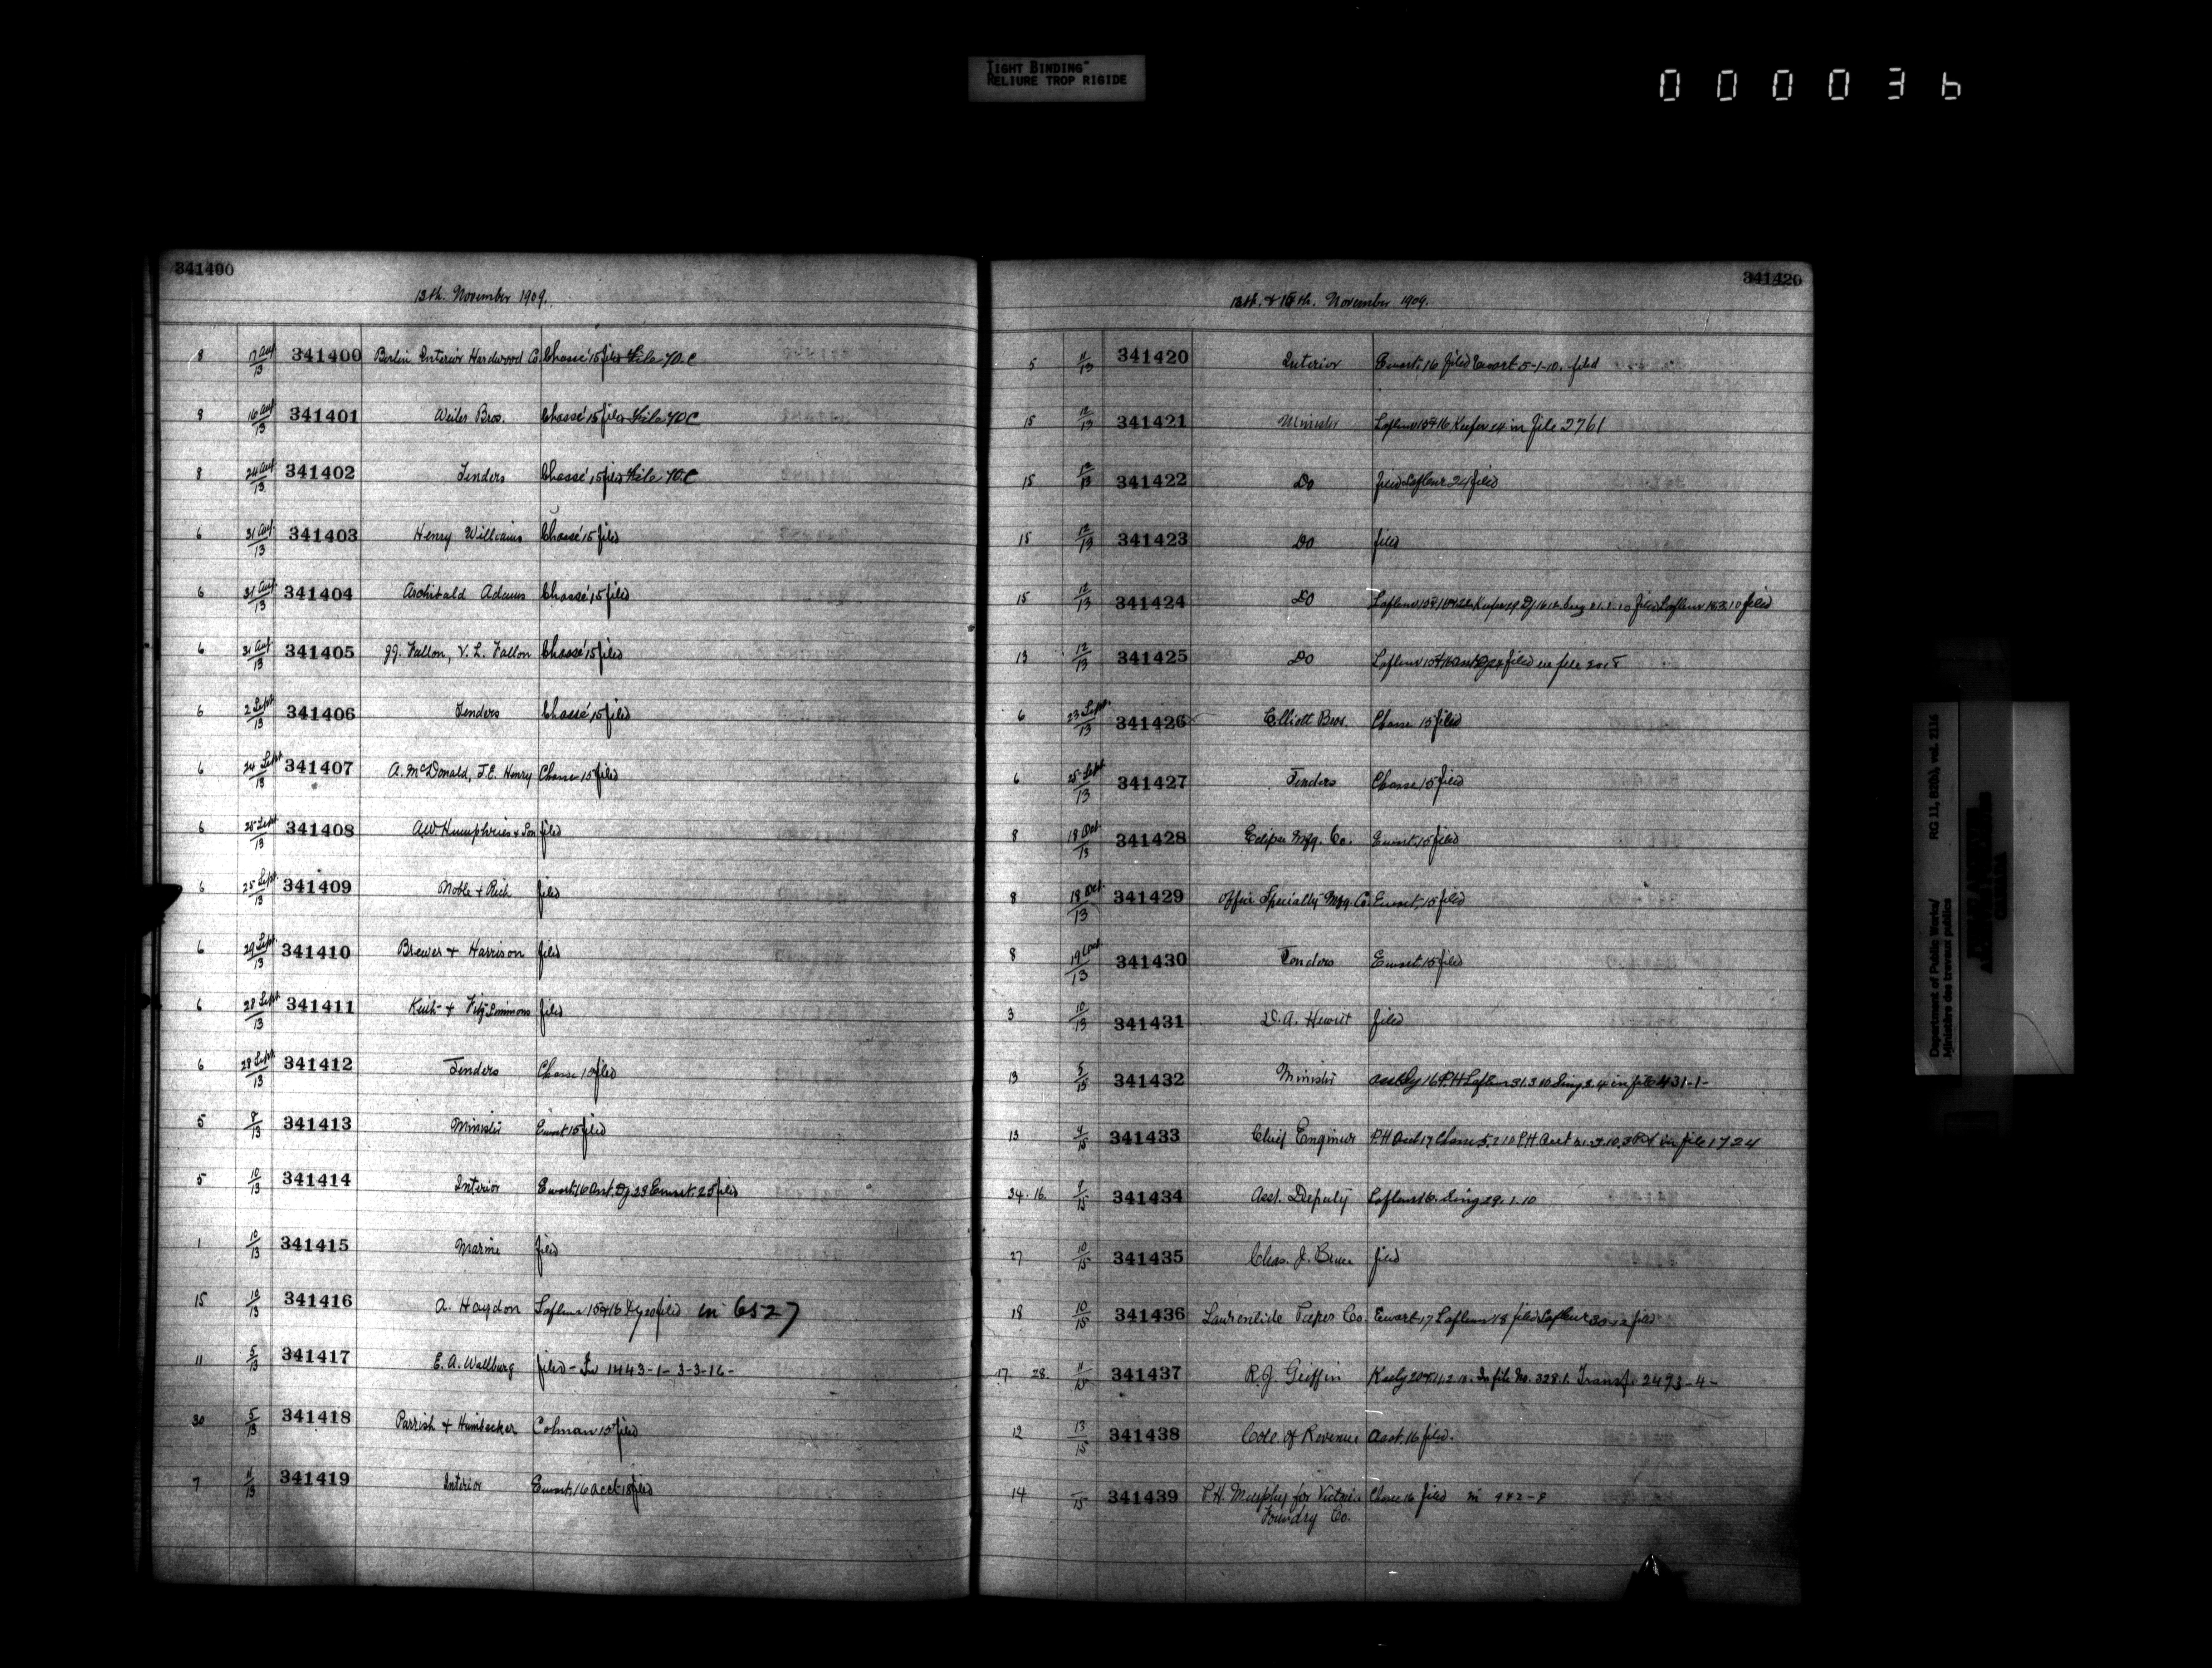 TIGHT BINDING"
RELIURE TROP RIGIDE
000036
341400
13th. November 1909.
8 17 Aug/13 341400 Berlin Interior Hardwood Co Chassé 15 filed File 70.C
8 16 Aug/13 341401 Weiler Bros. Chassé 15 filed File 70C
8 24 Aug/13 341402 Tenders Chassé 15 filed File 70.C
6 31 Aug/13 341403 Henry Williams Chassé 15 filed
6 31 Aug/13 341404 Archibald Adams Chassé 15 filed
6 31 Aug/13 341405 J.J. Fallon, V. L. Fallon Chassé 15 filed
6 2 Sept/13 341406 Tenders Chassé 15 filed
6 24 Sept/13 341407 A. McDonald, J.E. Henry Chasse 15 filed
6 25 Sept/13 341408 A.W. Humphries & Son filed
6 25 Sept/13 341409 Noble & Rich filed
6 29 Sept/13 341410 Brewer & Harrison filed
6 28 Sept/13 341411 Keith & Fitz Simmons filed
6 28 Sept/13 341412 Tenders Chasse 15 filed
5 8/13 341413 Minister Ewart 15 filed
5 10/13 341414 Interior Ewart. 16 Asst. Dy. 23 Ewart. 25 filed
1 10/13 341415 Marine filed
15 10/13 341416 A. Haydon Lafleur 15 & 16 Dy 20 filed in 6527
11 5/13 341417 E. A. Wallburg filed - In 1443-1-3-3-16-
30 5/13 341418 Parrish & Heimbecker Colman 15 filed
7 11/13 341419 Interior Ewart. 16 acct 18 filed
341420
13th. & 15th. November 1909.
5 11/13 341420 Interior Ewart. 16 filed Ewart 5-1-10. filed
15 12/13 341421 Minister Lafleur 15 & 16 Keefer 24 in file 2761
15 12/13 341422 Do filed Lafleur 24 filed
15 12/13 341423 Do filed
15 12/13 341424 Do filed Lafleur filed
13 12/13 341425 Do Lafleur filed in file
6 23 Sept./13 341426 Elliott Bros. Chasse 15 filed
6 25 Sept/13 341427 Tenders Chasse 15 filed
8 18 Oct./13 341428 Eclipse Mfg. Co. Ewart. 15 filed
8 18 Oct./13 341429 Office Specialty Mfg. Co. Ewart. 15 filed
8 19 Oct./13 341430 Tenders Ewart 15 filed
3 10/13 341431 D. A. Hewitt filed
13 5/15 341432 Minister Asst Dy 16 P.H Lafleur 31.3.10 in file 431-1-
13 9/15 341433 Chief Engineer P.H Acct 17 Chasse 5.2.10 P.H. Acct in file 1724
34. 16. 9/15 341434 Asst. Deputy Lafleur 16. 29.1.10
27 10/15 341435 Chas. J. Bruce filed
18 10/15 341436 Laurentide Paper Co. Ewart 17 Lafleur 18 filed Lafleur 30-12 filed
17. 28. 11/15 341437 R.J. Griffin Keely 20 & 11.2.10. In file No. 328.1. Transf. 2493-4-
12 13/15 341438 Col. of Revenue Asst. 16 filed.
14 15 341439 P.H. Murphy for Victoria Chasse 16 filed in 942-9
Foundry Co.
Department of Public Works/ RG 11, B2(b), vol. 2116
Ministère des travaux publics